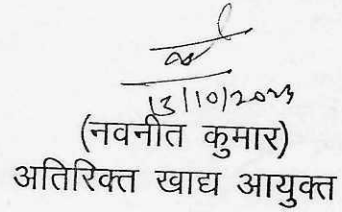 13/10/2023
(नवनीत कुमार)
अतिरिक्त खाद्य आयुक्त